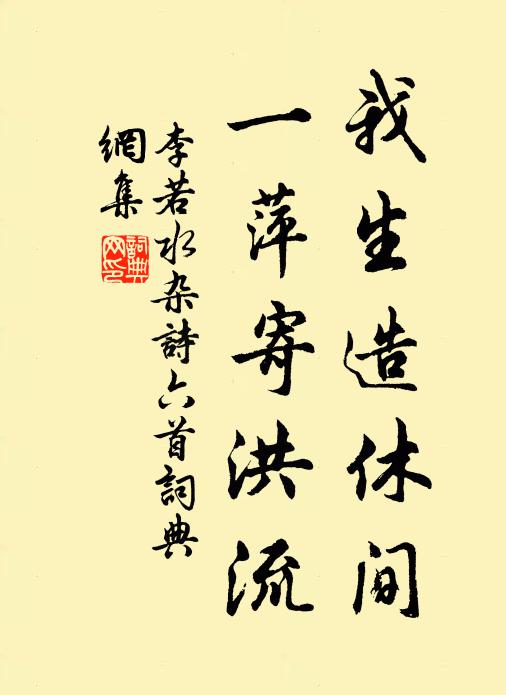 我生造休间
一萍寄洪流
李若水杂詩六首詞典
網集
詞典網印